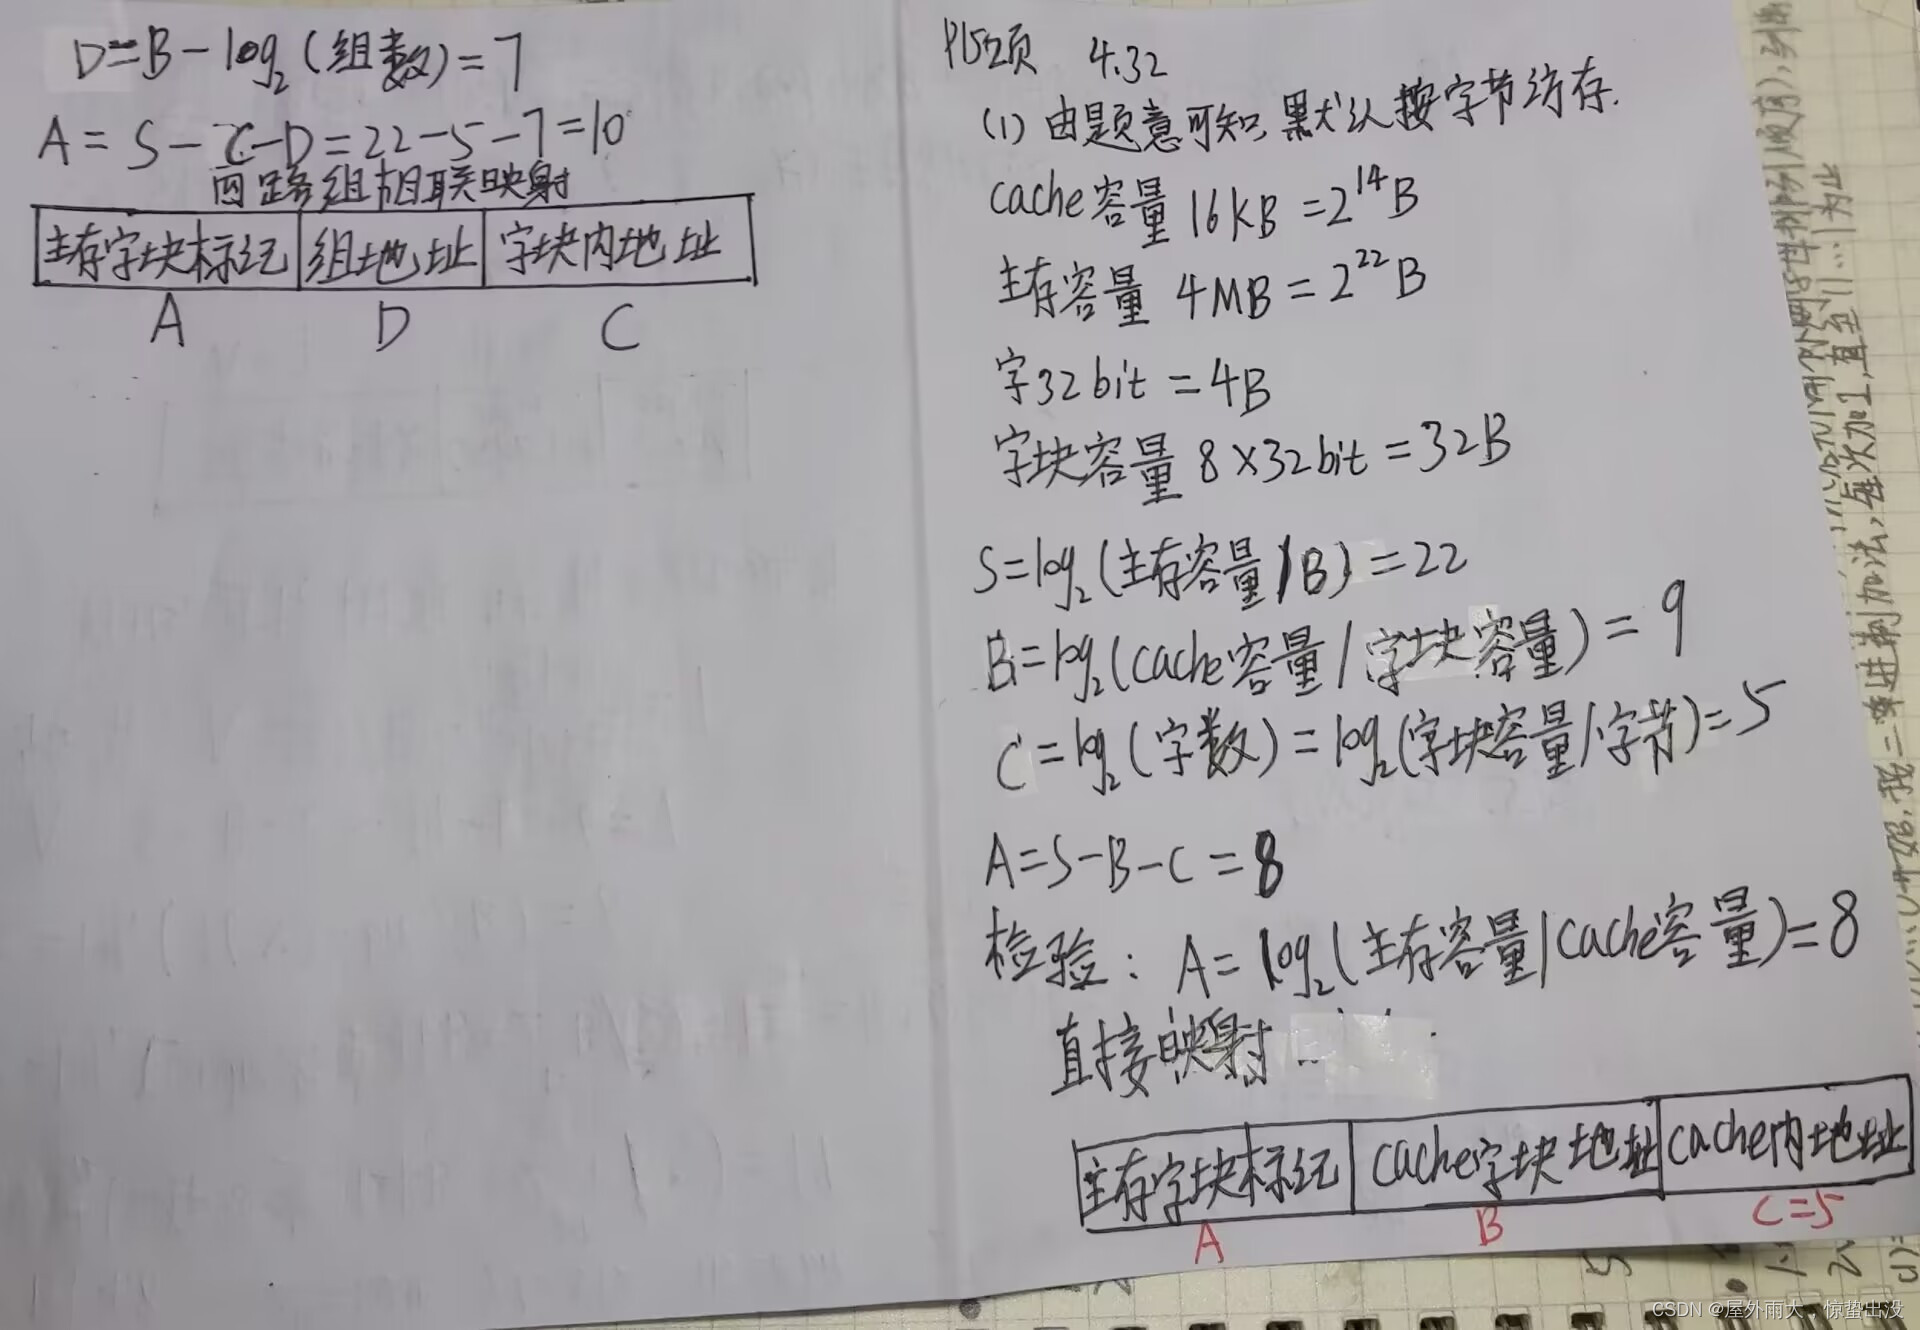 D=B-log₂(组数)=7
A=S-C-D=22-5-7=10
四路组相联映射
主存字块标记 组地址 字块内地址
A D C
4.32
(1) 由题意可知,默认按字节访存.
cache容量 16KB=2¹⁴B
主存容量 4MB=2²²B
字32bit=4B
字块容量 8×32bit=32B
S=log₂(主存容量/B)=22
B=log₂(cache容量/字块容量)=9
C=log₂(字数)=log₂(字块容量/字节)=5
A=S-B-C=8
检验:A=log₂(主存容量/cache容量)=8
直接映射
主存字块标记 cache字块地址 cache内地址
A B C=5
每次加1,直至11…1为止
二进制加法,
CSDN @屋外雨大,惊蛰出没